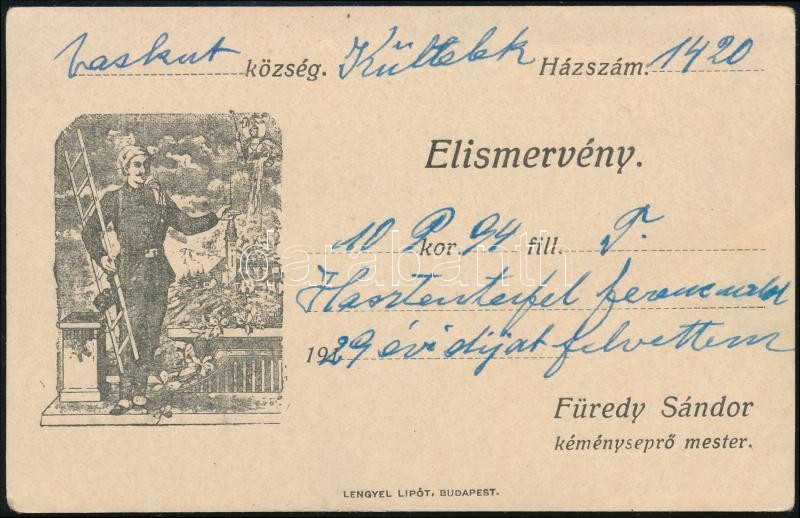 Vaskut község. Kültelek Házszám. 1420
Elismervény.
10 P kor. 94 fill. T.
Hasztenteufel Ferencnétől
1929 évi díjat felvettem
Füredy Sándor
kéményseprő mester.
LENGYEL LIPÓT, BUDAPEST.
darabanth